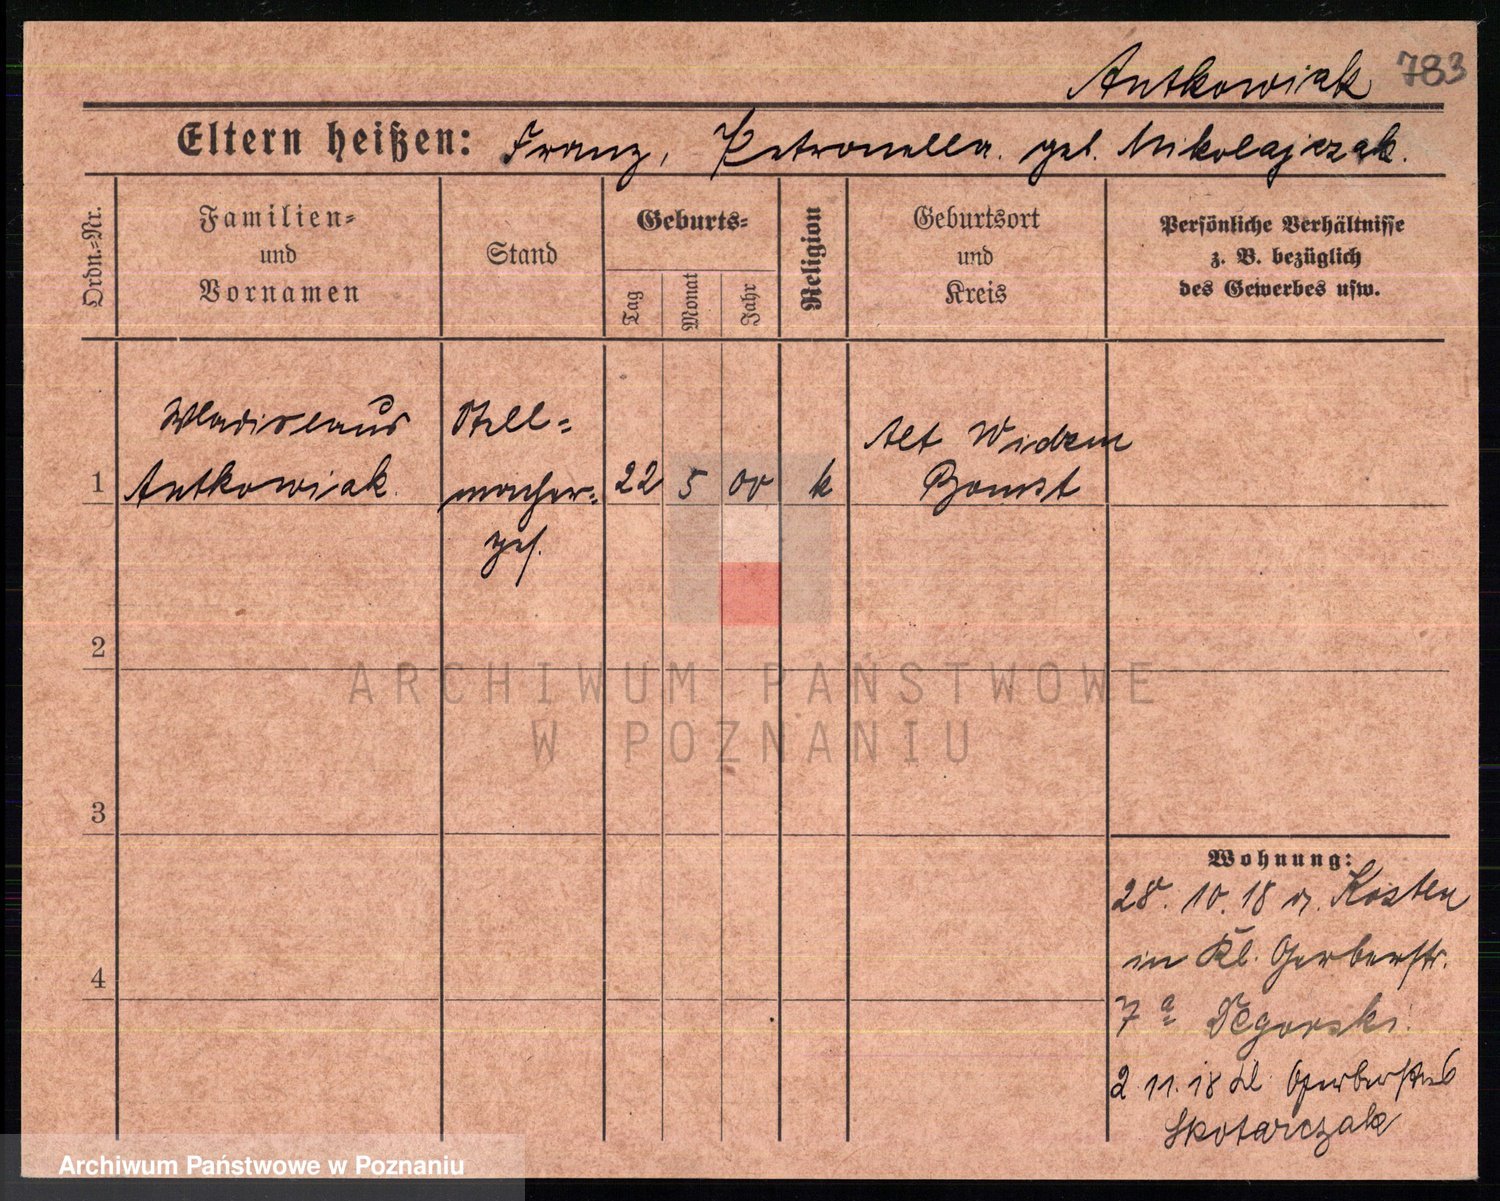 Antkowiak 783
Eltern heißen: Franz, Petronella geb. Mikolajczak.
Ordn.-Nr.
Familien-
und
Vornamen
Stand
Geburts-
Tag
Monat
Jahr
Religion
Geburtsort
und
Kreis
Persönliche Verhältnisse
z. B. bezüglich
des Gewerbes usw.
Wladislaus Stell- Alt Widzem
1 Antkowiak. macher- 22 5 00 k Bomst
ges.
2
ARCHIWUM PAŃSTWOWE
W POZNANIU
3
Wohnung:
28. 10. 18 v. Kosten
in Kl. Gerberstr.
4
7 a
2 11. 18 Kl. Gerberstr. 6
Skotarczak
Archiwum Państwowe w Poznaniu